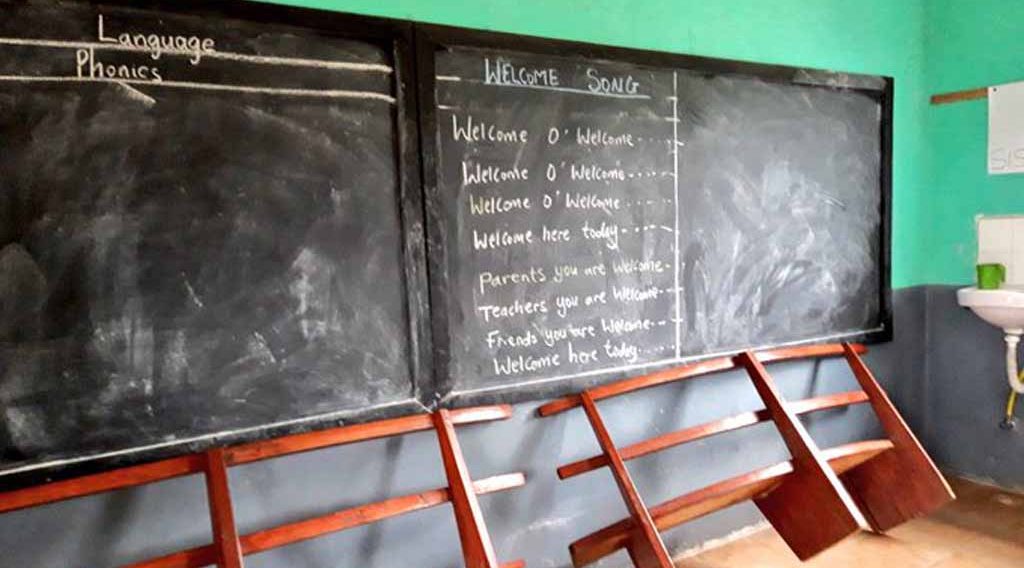 Language
Phonics
WELCOME SONG
Welcome O' Welcome.....
Welcome O' Welcome......
Welcome O' Welcome.....
Welcome here today.....
Parents you are Welcome..
Teachers you are Welcome...
Friends you are Welcome...
Welcome here today.....
SIS